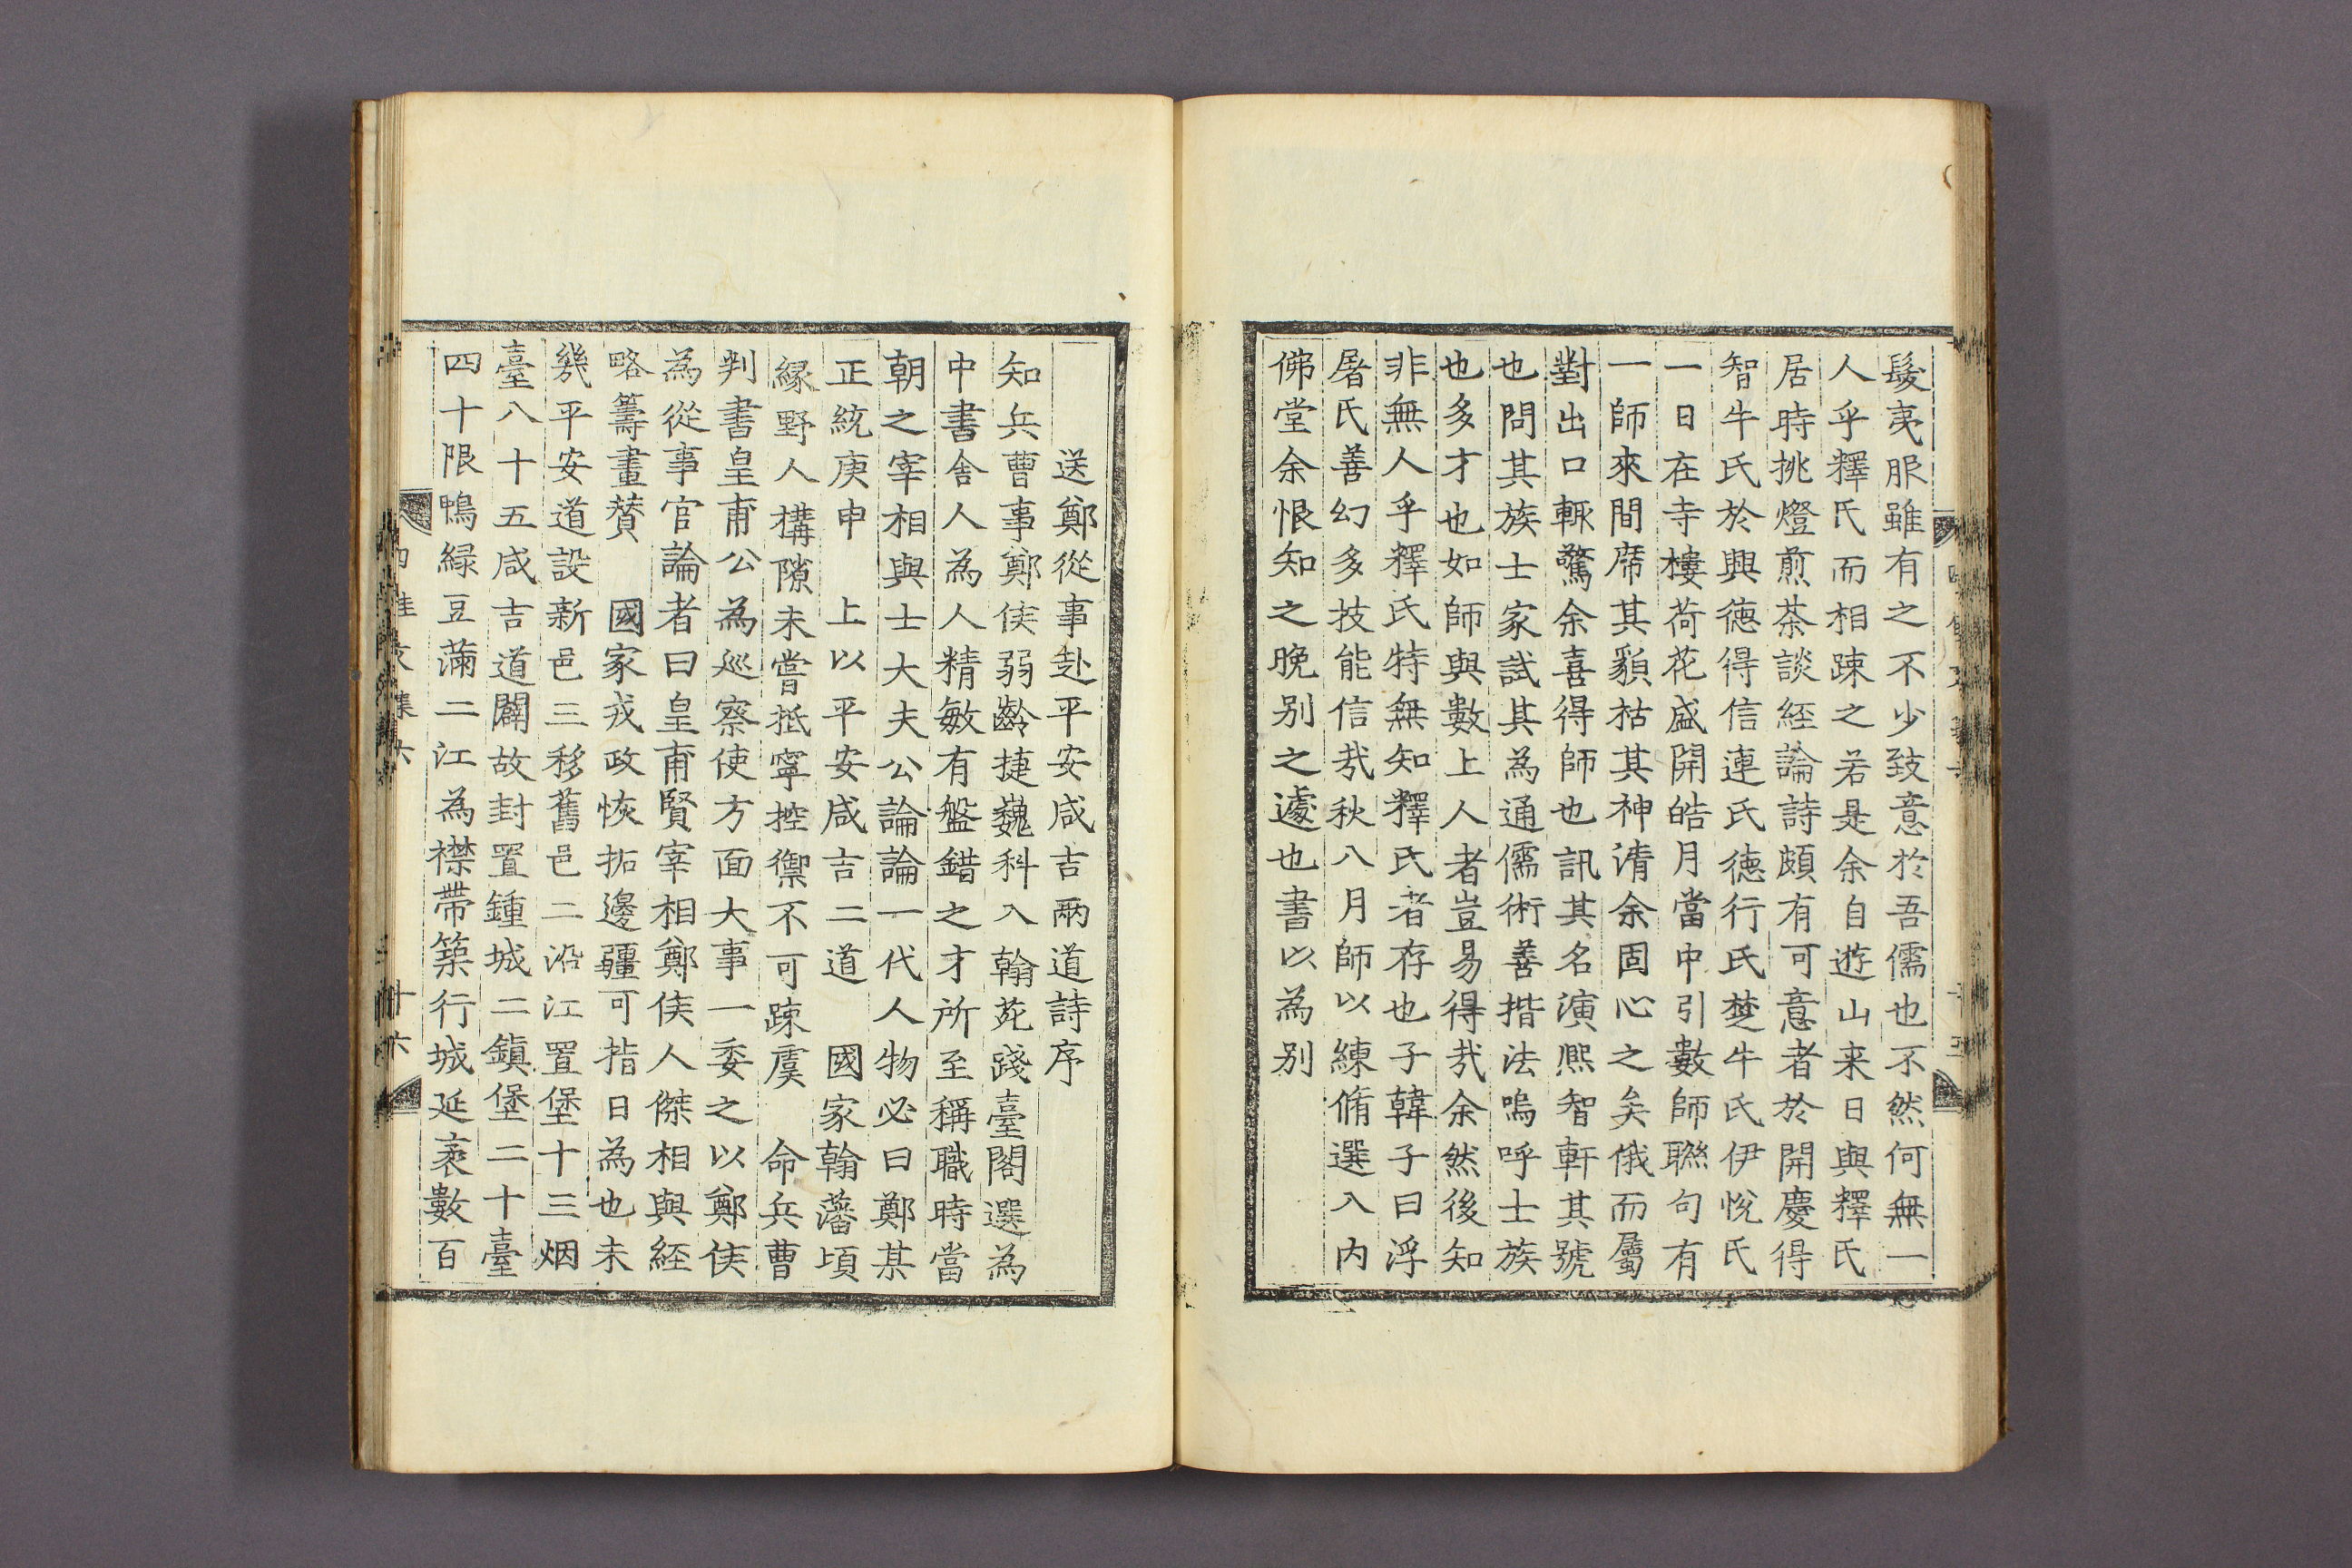 髮夷服雖有之不少致意於吾儒也不然何無一
人乎釋氏而相踈之若是余自遊山来日與釋氏
居時挑燈煎茶談經論詩頗有可意者於開慶得
智牛氏於興德得信連氏德行氏楚牛氏伊悅氏
一日在寺樓荷花盛開皓月當中引數師聮句有
一師來間席其貌枯其神清余固心之矣俄而屬
對出口輒驚余喜得師也訊其名演熈智軒其號
也問其族士家試其為通儒術善揩法嗚呼士族
也多才也如師與數上人者豈易得㢤余然後知
非無人乎釋氏特無知釋氏者存也子韓子曰浮
屠氏善幻多技能信㢤秋八月師以練脩選入内
佛堂余恨知之晩别之遽也書以為别
送鄭從事赴平安咸吉兩道詩序
知兵曹事鄭侯弱齡捷巍科入翰苑踐臺閣選為
中書舍人為人精敏有盤錯之才所至稱職時當
朝之宰相與士大夫公論論一代人物必曰鄭某
正統庚申 上以平安咸吉二道 國家翰藩頃
緣野人構隙未嘗抵寧控禦不可踈虞 命兵曹
判書皇甫公為廵察使方面大事一委之以鄭侯
為從事官論者曰皇甫賢宰相鄭侯人傑相與經
略籌畫賛 國家戎政恢拓邊疆可指日為也未
㡬平安道設新邑三移舊邑二沿江置堡十三烟
臺八十五咸吉道闢故封置鍾城二鎭堡二十臺
四十限鴨緑豆滿二江為襟帶築行城延袤數百
四佳文集六
十六